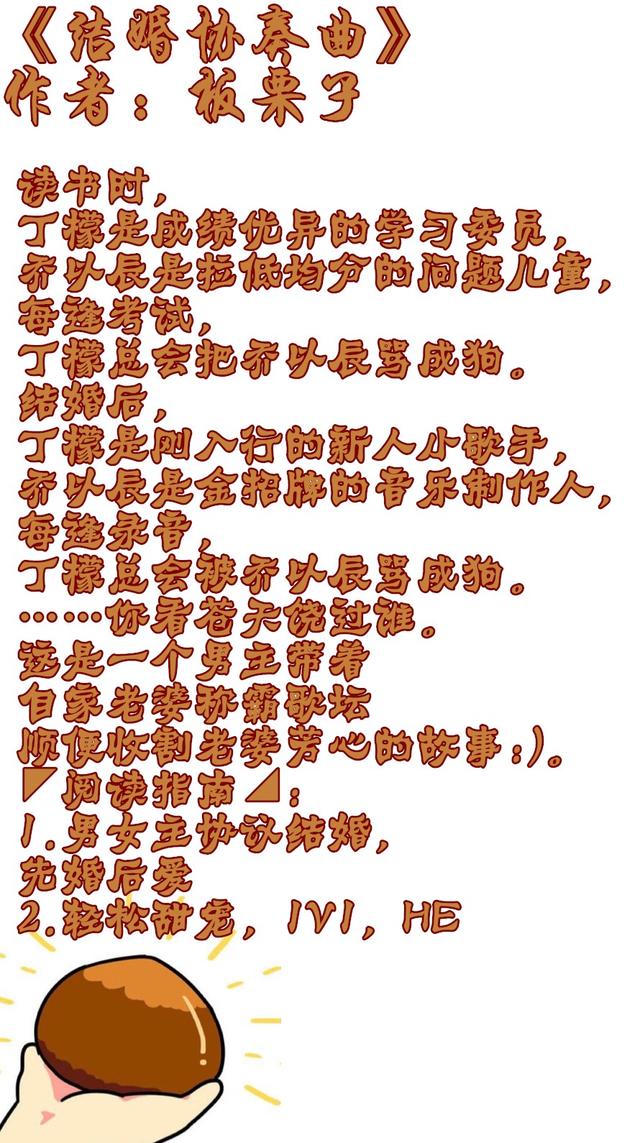 《结婚协奏曲》
作者：板栗子
读书时，
丁檬是成绩优异的学习委员，
乔以辰是拉低均分的问题儿童，
每逢考试，
丁檬总会把乔以辰骂成狗。
结婚后，
丁檬是刚入行的新人小歌手，
乔以辰是金招牌的音乐制作人，
每逢录音，
丁檬总会被乔以辰骂成狗。
……你看苍天饶过谁。
这是一个男主带着
自家老婆称霸歌坛
顺便收割老婆芳心的故事:)。
◤阅读指南◢：
1.男女主协议结婚，
先婚后爱
2.轻松甜宠，1V1，HE